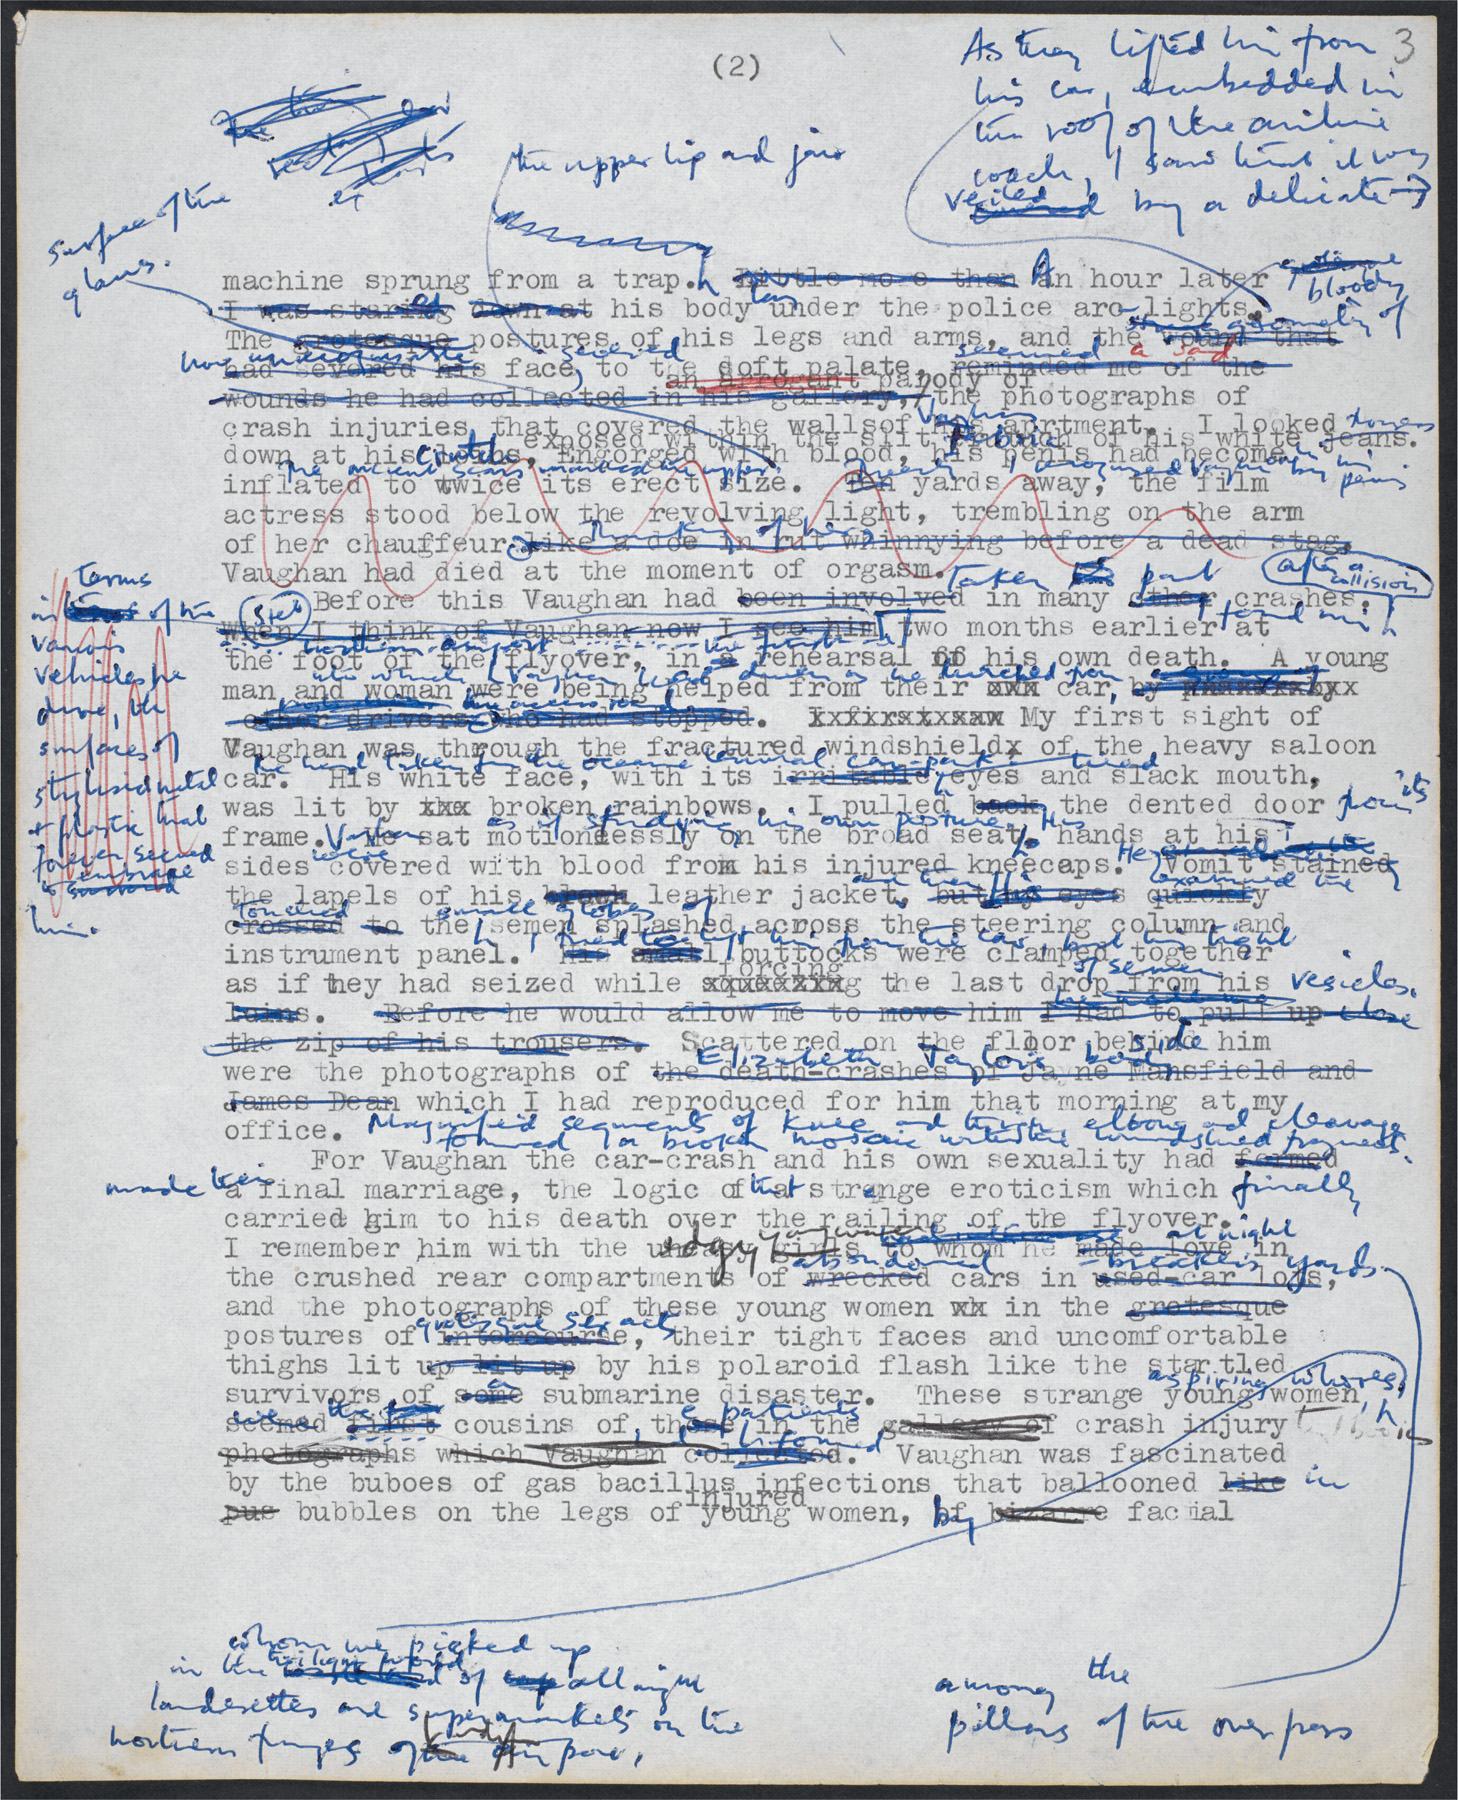 (2)
3
As they lifted him from
his car, embedded in
the roof of the airline
coach, I saw that it was
veiled by a delicate →
the upper lip and jaw
surface of the
glans.
machine sprung from a trap. Little more than An hour later
bloody
I was staring down at his body lay under the police arc-lights.
geometry of
The grotesque postures of his legs and arms, and the wound that
now severed seemed a sad
had severed his face, to the soft palate, reminded me of the
an arrogant parody of
wounds he had collected in his gallery, the photographs of
crash injuries that covered the walls of his apartment. I looked down
exposed within the slit crutch of his white jeans.
down at his crutch. Engorged with blood, his penis had become
The ancient scars marked the upper I recognised Vaughan by his penis
inflated to twice its erect size. Twenty Ten yards away, the film
actress stood below the revolving light, trembling on the arm
of her chauffeur like a doe in rut whinnying before a dead stag.
Vaughan had died at the moment of orgasm.
taken part after a collision
Before this Vaughan had been involved in many other crashes.
stet I found him
When I think of Vaughan now I see him two months earlier at
northern airport the first
the foot of the flyover, in a rehearsal of his own death. A young
man and woman were being helped from their xxx car, by
other drivers who had stopped. My first sight of
Vaughan was through the fractured windshield of the heavy saloon
he had taken from the oceanic terminal car-park tired
car. His white face, with its irritable eyes and slack mouth,
was lit by xxx broken rainbows. I pulled back the dented door from its
as if studying his own posture. His
frame. Vaughan He sat motionlessly on the broad seat, hands at his
sides were covered with blood from his injured kneecaps. Vomit stained
He examined the
the lapels of his black leather jacket, but his eyes quickly
touched small globes of
crossed to the semen splashed across the steering column and
I tried to lift him from the car, but his tight
instrument panel. His small buttocks were clamped together
forcing of semen
as if they had seized while squeezing the last drop from his vesicles.
loins. Before he would allow me to move him I had to pull up close
the zip of his trousers. Scattered on the floor beside him
Elizabeth Taylor's bod
were the photographs of the death-crashes of Jayne Mansfield and
James Dean which I had reproduced for him that morning at my
office. Magnified segments of knee and thigh, elbow and cleavage
formed a broken mosaic within the windshield fragments.
For Vaughan the car-crash and his own sexuality had formed
made their a final marriage, the logic of that strange eroticism which finally
carried him to his death over the railing of the flyover.
edgy young women at night
I remember him with the uneasy girls to whom he made love in
abandoned -breakers yards
the crushed rear compartments of wrecked cars in used-car lots,
and the photographs of these young women xx in the grotesque
grotesque sex acts
postures of intercourse, their tight faces and uncomfortable
thighs lit up lit up by his polaroid flash like the startled
a aspiring whores,
survivors of some submarine disaster. These strange young women,
were the patients
seemed first cousins of, those in the gallery of crash injury
photographs which Vaughan collected. Vaughan was fascinated
by the buboes of gas bacillus infections that ballooned like in
injured
pus bubbles on the legs of young women, by of bizarre facial
terms
in of the
various
vehicles he
drove, the
surfaces of
stylised metal
+ plastic that
forever seemed
to embrace
him.
whom we picked up
in the of all night
landerettes and supermarkets on the
northern fringes of the airport,
among the
pillars of the overpass